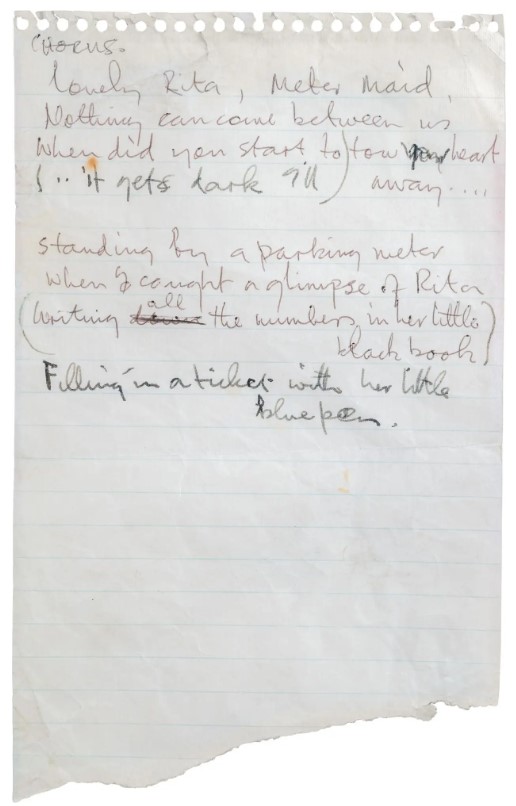 CHORUS.
Lovely Rita, Meter Maid,
Nothing can come between us
When did you start to) tow your heart
(... it gets dark I'll) away....
standing by a parking meter
when I caught a glimpse of Rita
all
(writing down the numbers in her little
black book)
Filling in a ticket with her little
blue pen.